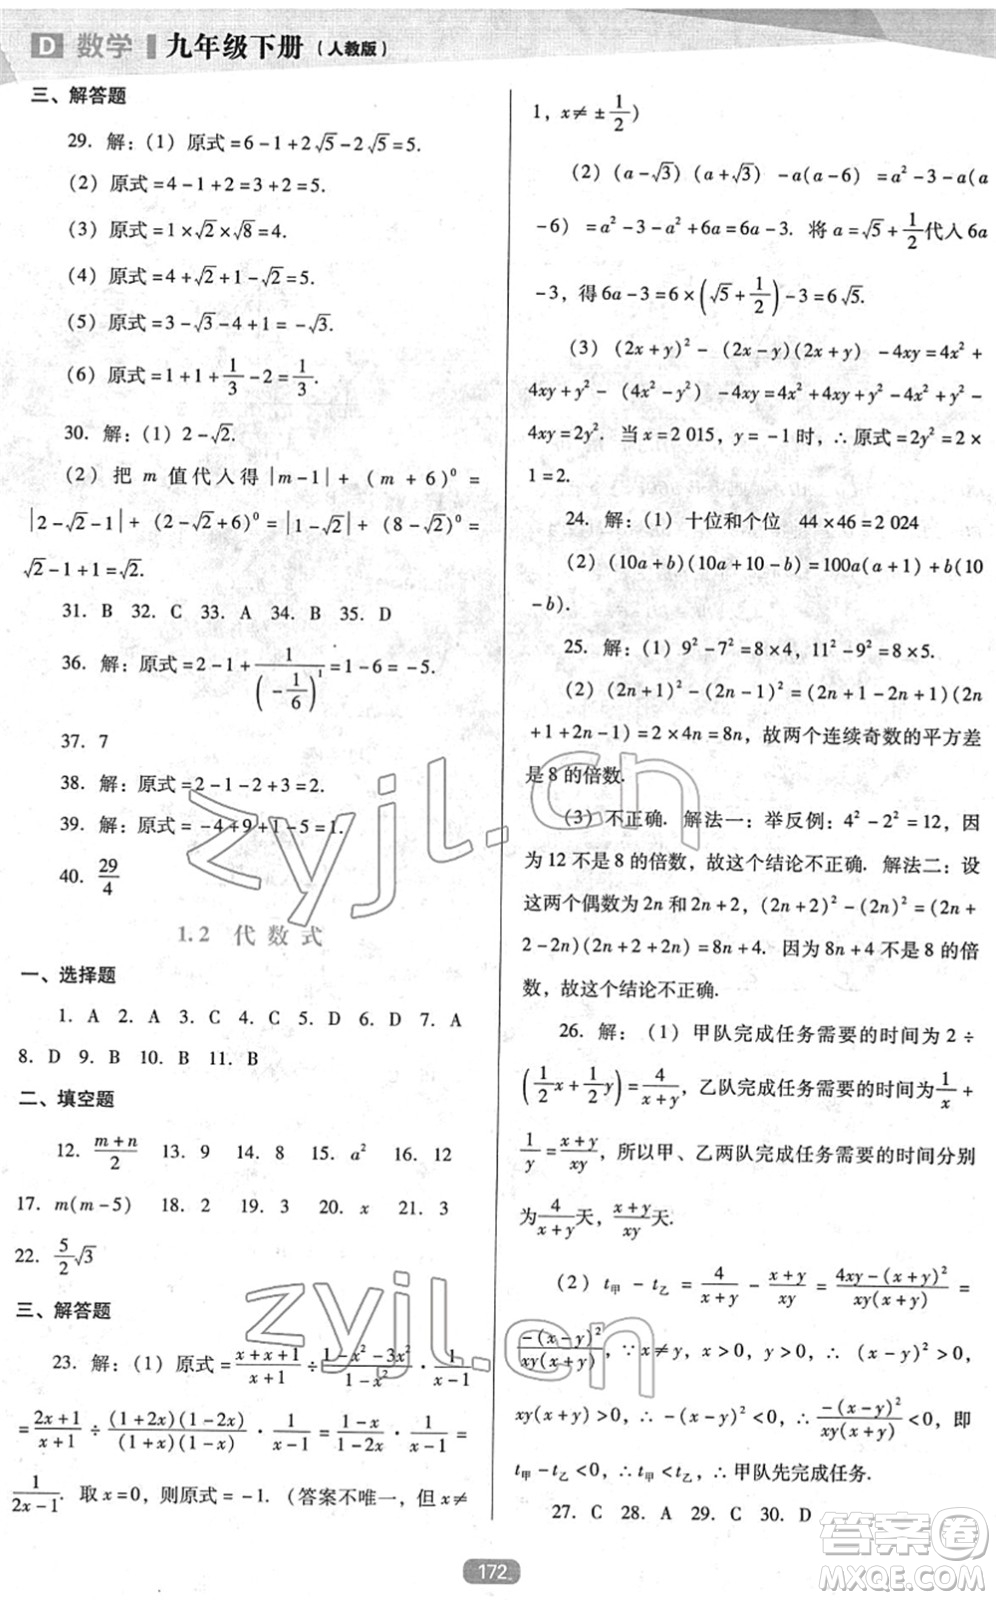 D 数学 九年级下册（人教版）
三、解答题
29. 解:(1) 原式=6-1+2√5-2√5=5.
(2) 原式=4-1+2=3+2=5.
(3) 原式=1×√2×√8=4.
(4) 原式=4+√2+1-√2=5.
(5) 原式=3-√3-4+1=-√3.
(6) 原式=1+1+1/3-2=1/3.
30. 解:(1) 2-√2.
(2) 把 m 值代人得 |m-1|+(m+6)⁰=
|2-√2-1|+(2-√2+6)⁰=|1-√2|+(8-√2)⁰=
√2-1+1=√2.
31. B 32. C 33. A 34. B 35. D
36. 解:原式=2-1+1/(-1/6)¹=1-6=-5.
37. 7
38. 解:原式=2-1-2+3=2.
39. 解:原式=-4+9+1-5=1.
40. 29/4
1.2 代数式
一、选择题
1. A 2. A 3. C 4. C 5. D 6. D 7. A
8. D 9. B 10. B 11. B
二、填空题
12. (m+n)/2 13. 9 14. 8 15. a² 16. 12
17. m(m-5) 18. 2 19. 3 20. x 21. 3
22. 5/2√3
三、解答题
23. 解:(1) 原式=(x+x+1)/(x+1)÷(1-x²-3x²)/(1-x²)·1/(x-1)
=(2x+1)/(x+1)÷((1+2x)(1-2x))/((1+x)(1-x))·1/(x-1)=(1-x)/(1-2x)·1/(x-1)=
1/(2x-1). 取 x=0,则原式=-1.(答案不唯一,但 x≠
1,x≠±1/2)
(2) (a-√3)(a+√3)-a(a-6)=a²-3-a(a
-6)=a²-3-a²+6a=6a-3. 将 a=√5+1/2代人 6a
-3,得 6a-3=6×(√5+1/2)-3=6√5.
(3) (2x+y)²-(2x-y)(2x+y)-4xy=4x²+
4xy+y²-(4x²-y²)-4xy=4x²+4xy+y²-4x²+y²-
4xy=2y². 当 x=2 015,y=-1 时,∴原式=2y²=2×
1=2.
24. 解:(1) 十位和个位 44×46=2 024
(2) (10a+b)(10a+10-b)=100a(a+1)+b(10
-b).
25. 解:(1) 9²-7²=8×4,11²-9²=8×5.
(2) (2n+1)²-(2n-1)²=(2n+1-2n+1)(2n
+1+2n-1)=2×4n=8n,故两个连续奇数的平方差
是 8 的倍数.
(3) 不正确. 解法一:举反例:4²-2²=12,因
为 12 不是 8 的倍数,故这个结论不正确. 解法二:设
这两个偶数为 2n 和 2n+2,(2n+2)²-(2n)²=(2n+
2-2n)(2n+2+2n)=8n+4. 因为 8n+4 不是 8 的倍
数,故这个结论不正确.
26. 解:(1) 甲队完成任务需要的时间为 2÷
(1/2x+1/2y)=4/(x+y),乙队完成任务需要的时间为1/x+
1/y=(x+y)/xy,所以甲、乙两队完成任务需要的时间分别
为4/(x+y)天,(x+y)/xy天.
(2) t甲-t乙=4/(x+y)-(x+y)/xy=(4xy-(x+y)²)/(xy(x+y))=
-(x-y)²/(xy(x+y)),∵x≠y,x>0,y>0,∴(x-y)²>0,
xy(x+y)>0,∴-(x-y)²<0,∴-(x-y)²/(xy(x+y))<0,即
t甲-t乙<0,∴t甲<t乙,∴甲队先完成任务.
27. C 28. A 29. C 30. D
172
zyjl.cn
zyjl.cn
答案圈
MXQE.COM